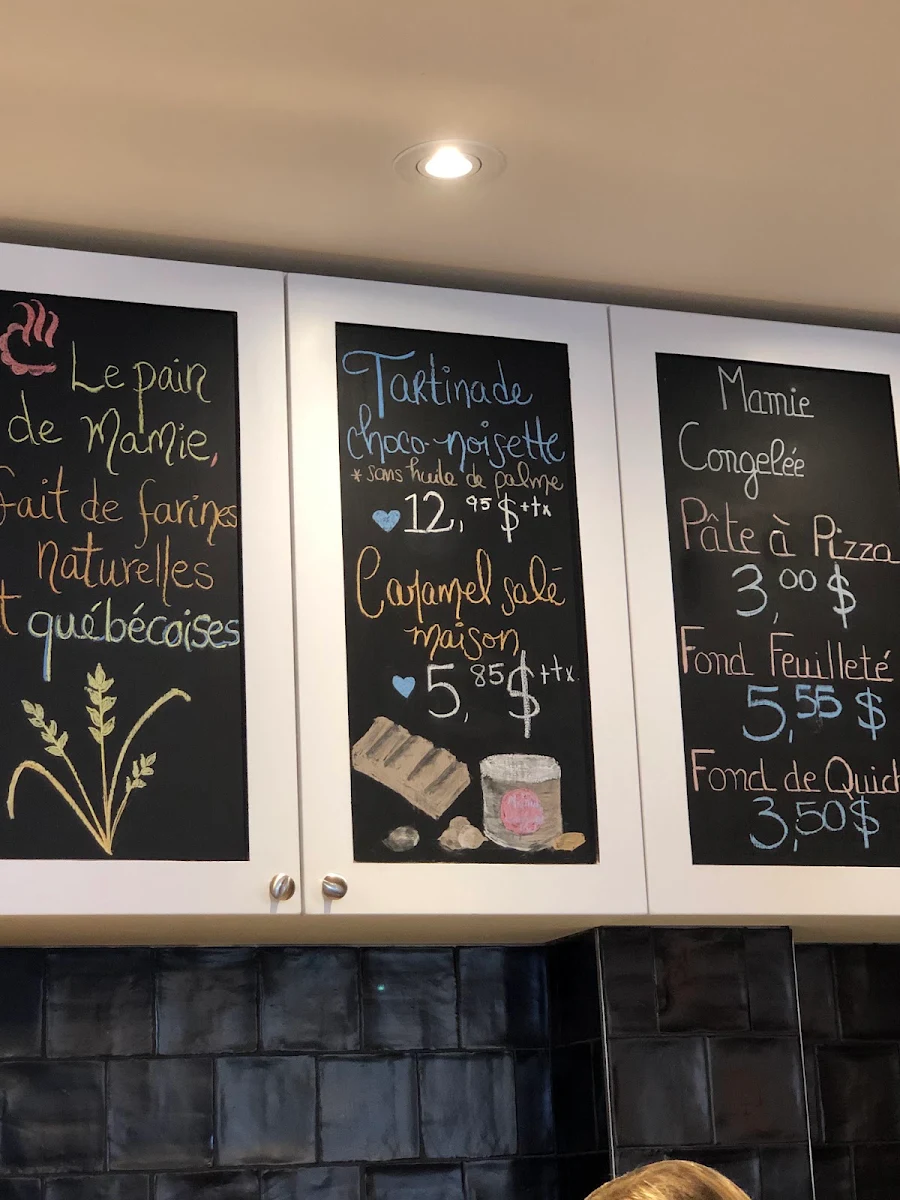 Le pain
de Mamie,
fait de farines
naturelles
et québécoises
Tartinade
choco-noisette
*sans huile de palme
12,95$+tx
Caramel salé
maison
5,85$+tx
Mamie
Congelée
Pâte à Pizza
3,00$
Fond Feuilleté
5,55$
Fond de Quich
3,50$